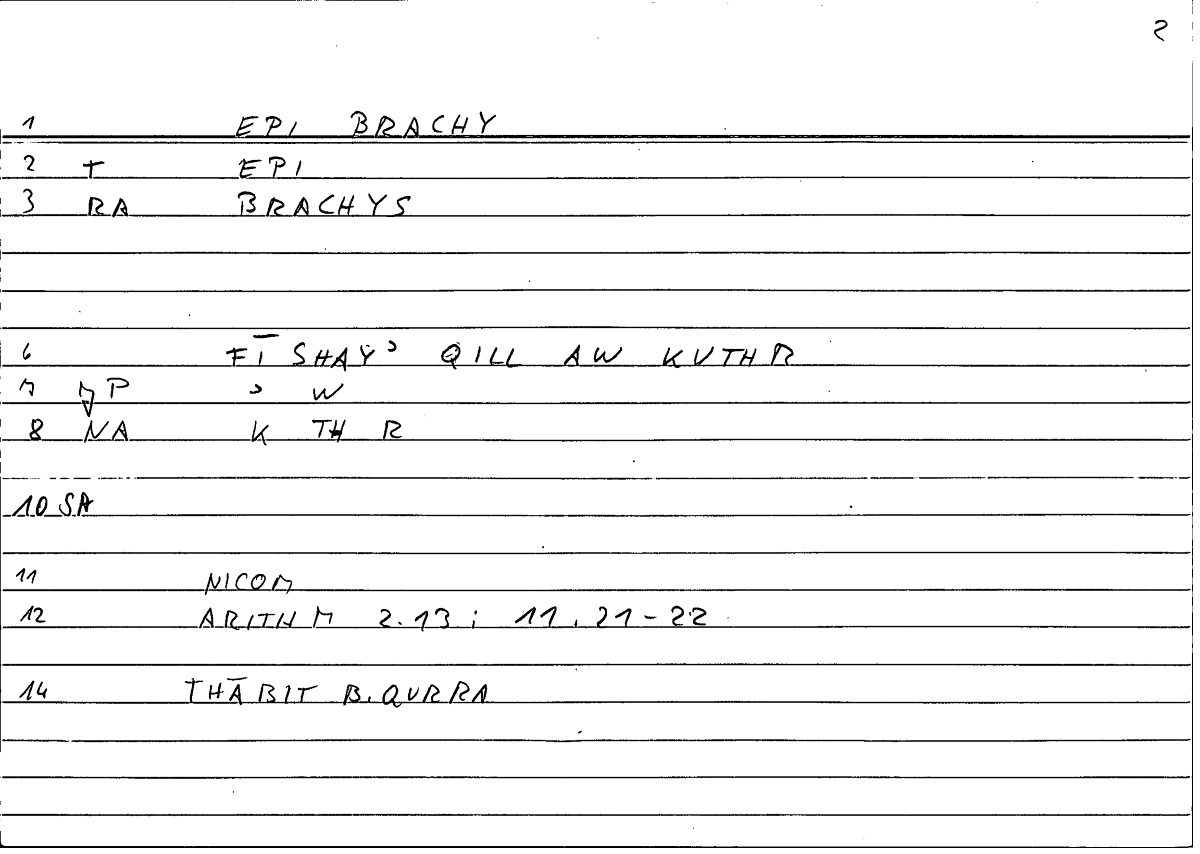 2
1 EPI BRACHY
2 T EPI
3 RA BRACHYS
6 FĪ SHAY' QILL AW KUTHR
7 MP ' W
8 NA K TH R
10 SA
11 NICOM
12 ARITHM 2.13; 11,21-22
14 THĀBIT B. QURRA